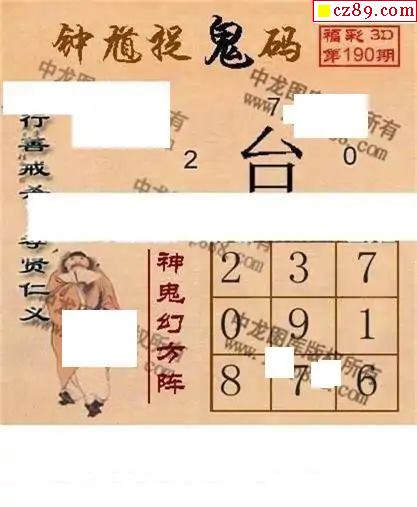 cz89.com
钟馗捉鬼码
福彩3D
第190期
7
2
台
0
行善戒杀
尊贤仁义
神鬼幻方阵
2 3 7
0 9 1
8 7 6
中龙图库版权所有